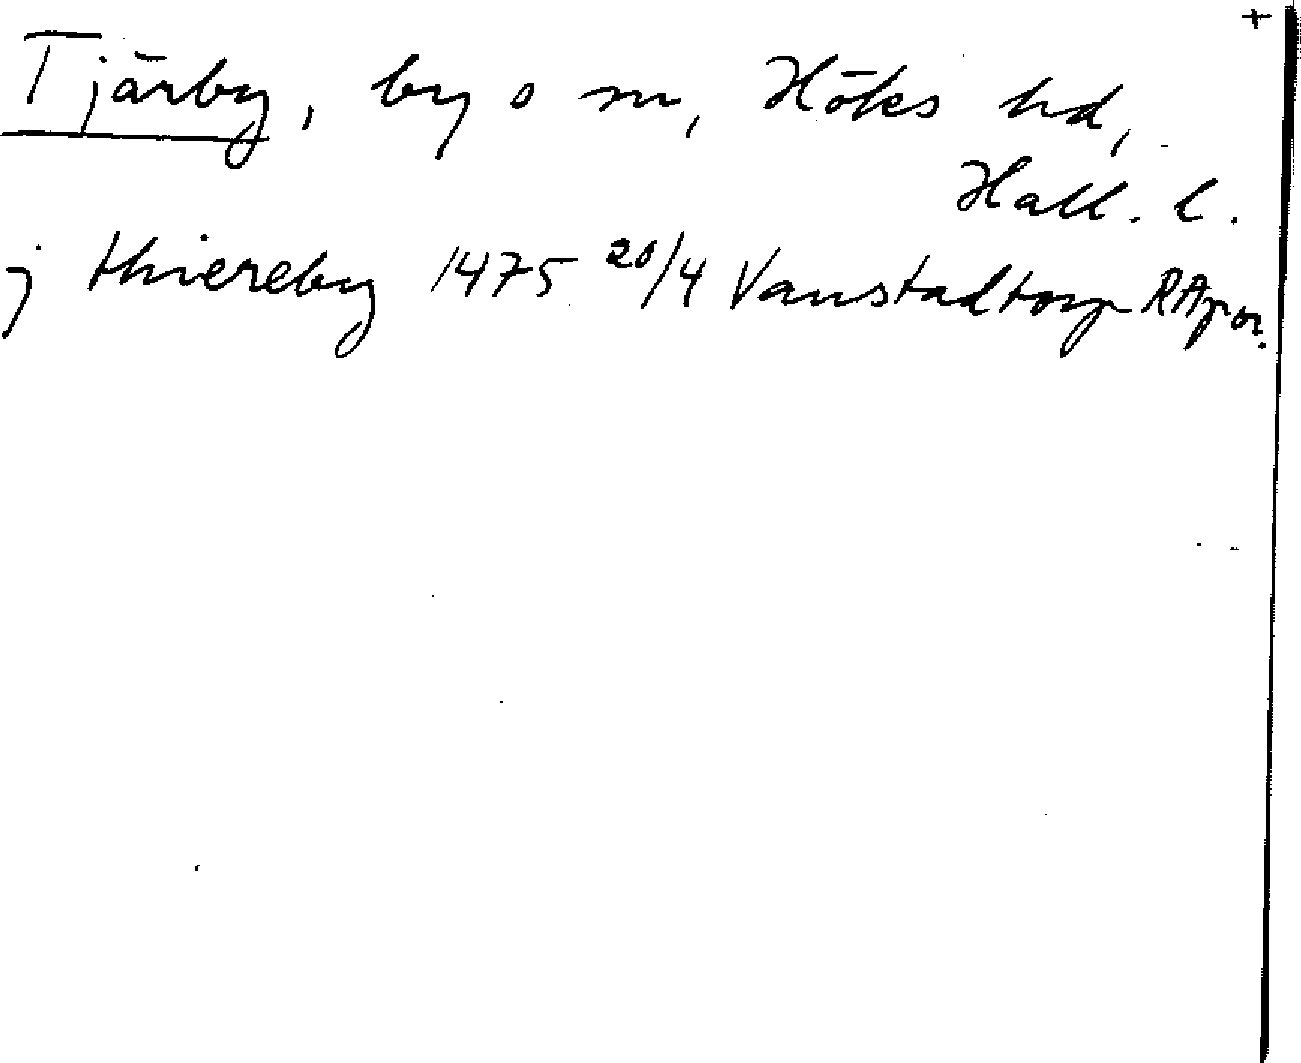 +
Tjärby, by o sn, Höks hd,
Hall. l.
j thiereby 1475 20/4 Vanstadtorp RAp or.